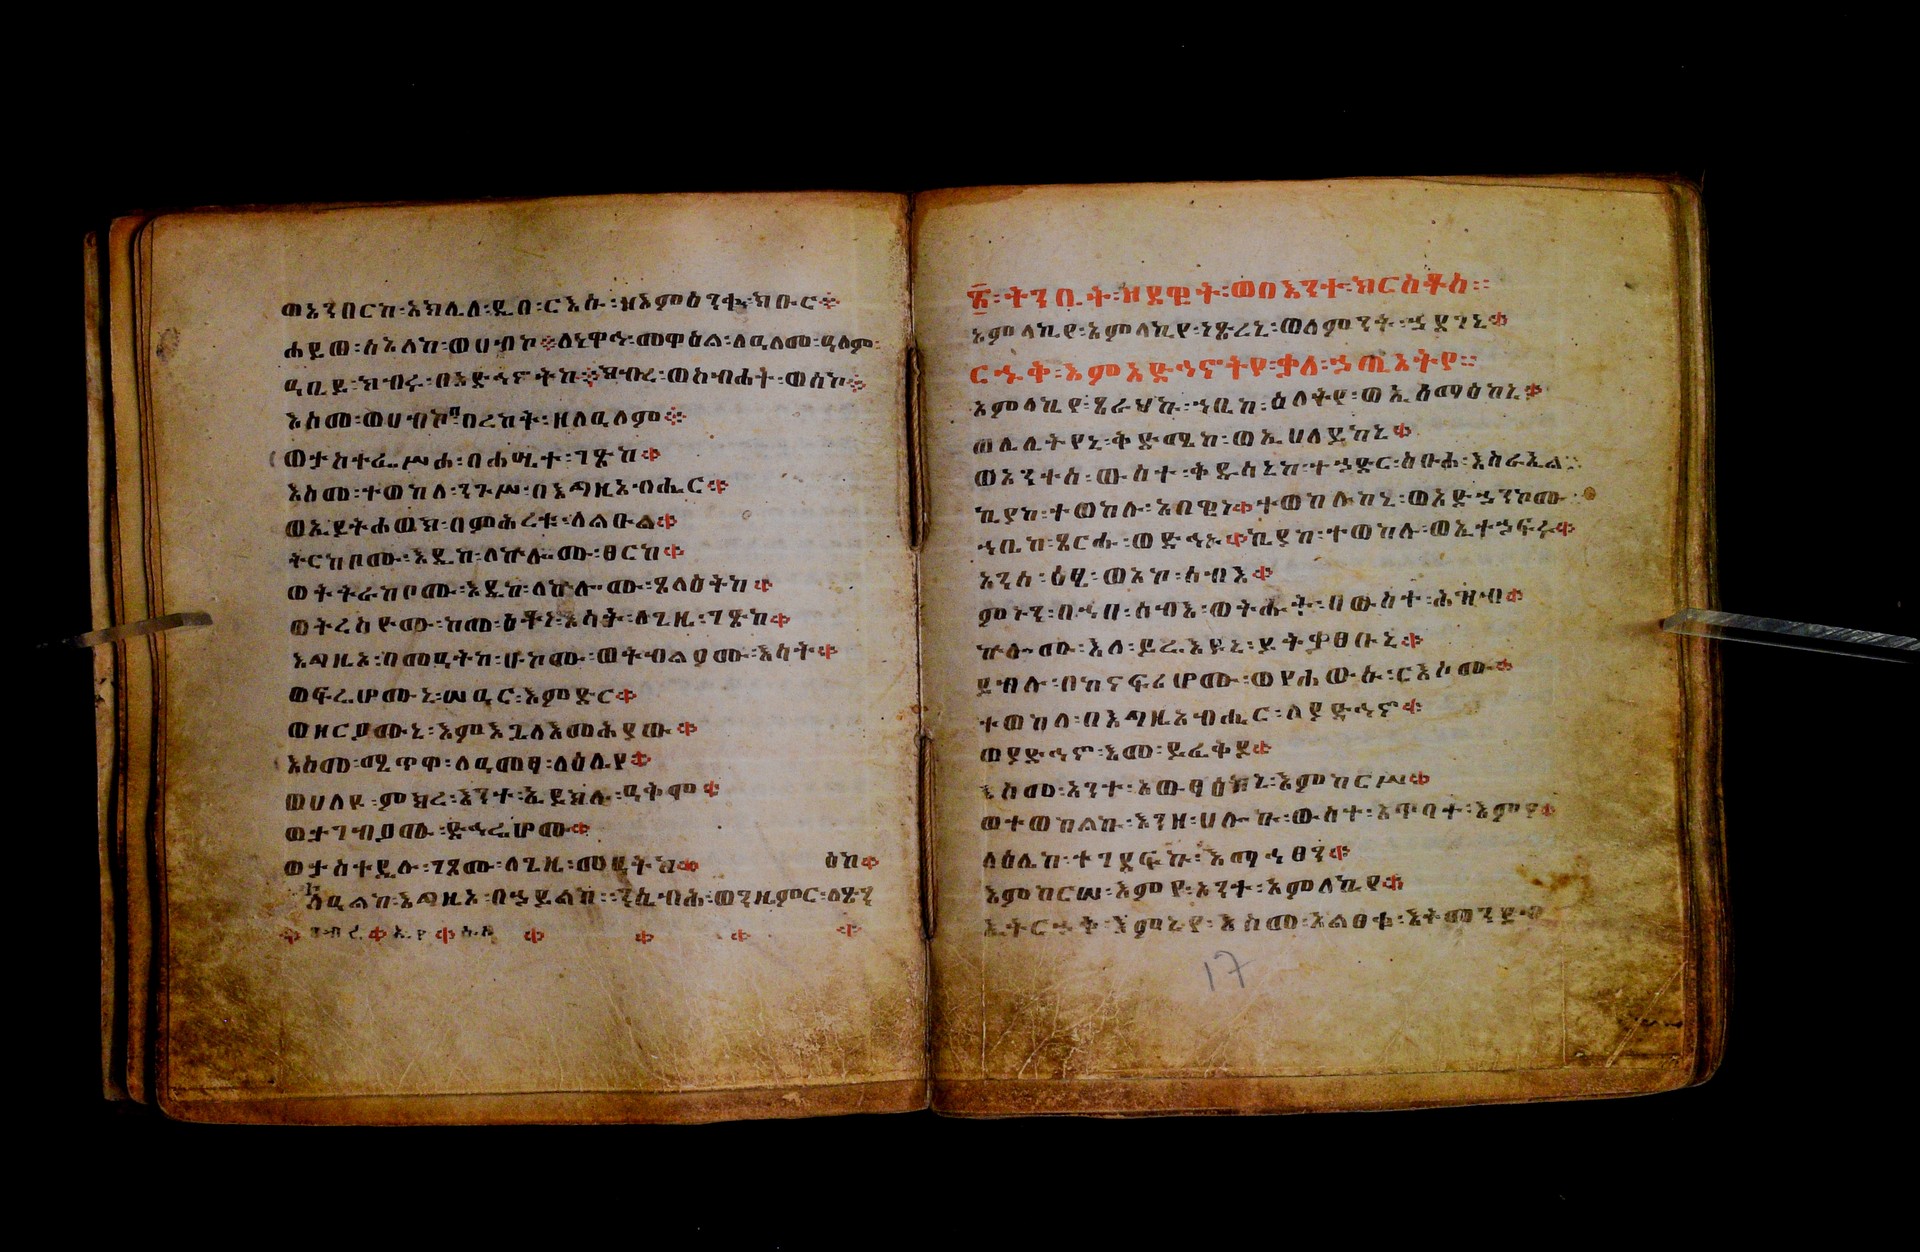 ወአንበርከ፡አክሊለ፡ዲበ፡ርእሱ፡ዘእምዕንቍ፡ክቡር፨
ሐይወ፡ስእለከ፡ወሀብኮ፨ለነዋኅ፡መዋዕል፡ለዓለመ፡ዓለም፡
ዓቢይ፡ክብሩ፡በአድኅኖትከ፨ክብረ፡ወስብሐት፡ወሰኮ፨
እስመ፡ወሀብኮ፡በረከት፡ዘለዓለም፨
ወታስተፌሥሖ፡በሐሤተ፡ገጽከ።
እስመ፡ተወከለ፡ንጉሥ፡በእግዚአብሔር።
ወኢይትሐወክ፡በምሕረቱ፡ለልዑል።
ትርከቦሙ፡እዴከ፡ለኵሎሙ፡ፀርከ።
ወትትራከቦሙ፡እዴከ፡ለኵሎሙ፡ጸላዕትከ።
ወትረስዮሙ፡ከመ፡ዕቶነ፡እሳት፡ለጊዜ፡ገጽከ።
እግዚአ፡በመዓትከ፡ሁከሙ፡ወትብልዖሙ፡እሳት።
ወፍሬሆሙኒ፡ወዓር፡እምድር።
ወዘርዖሙኒ፡እምእጓለእመሕያው።
እስመ፡ሚጥዋ፡ለዓመፃ፡ለዕሌየ።
ወሀለዩ፡ምክረ፡እንተ፡ኢይክሉ፡ዓቅሞ።
ወታገብዖሙ፡ድኅሬሆሙ።
ወታስተዴሉ፡ገጾሙ፡ለጊዜ፡መዓትከ። ዕከ።
ተለዓልከ፡እግዚኦ፡በኃይልከ፡ንሴብሕ፡ወንዜምር፡ለጽን
፳፩፡ትንቢት፡ዘዳዊት፡ወበእንተ፡ክርስቶስ።
አምላኪየ፡አምላኪየ፡ነጽረኒ፡ወለምንት፡ኃደገኒ።
ርኁቅ፡እምአድኅኖትየ፡ቃለ፡ኃጢአትየ።
አምላኪየ፡ጸራህኩ፡ኀቤከ፡ዕለትየ፡ወኢሰማዕከኒ።
ወሌሊትየኒ፡ቅድሜከ፡ወኢሀለይከኒ።
ወአንተሰ፡ውስተ፡ቅዱሳኒከ፡ተኃድር፡ስቡሕ፡እስራኤል
ኪያከ፡ተወከሉ፡አበዊነ።ተወከሉከኒ፡ወአድኃንኮሙ፡
ኀቤከ፡ጸርሑ፡ወድኅኑ።ኪያከ፡ተወከሉ፡ወኢተኃፍሩ።
አንሰ፡ዕፄ፡ወአኮ፡ሰብእ።
ምኑን፡በኀበ፡ሰብእ፡ወትሑት፡በውስተ፡ሕዝብ።
ኵሎሙ፡እለ፡ይሬእዩኒ፡ይትቃፀቡኒ።
ይብሉ፡በከናፍሪሆሙ፡ወየሐውሱ፡ርእሶሙ።
ተወከለ፡በእግዚአብሔር፡ለያድኅኖ።
ወያድኅኖ፡እመ፡ይፈቅዶ።
እስመ፡አንተ፡አውፃዕከኒ፡እምከርሥ።
ወተወከልኩ፡እንዘ፡ሀሎኩ፡ውስተ፡አጥባተ፡እምየ።
ለዕሌከ፡ተገደፍኩ፡እማኅፀን።
እምከርሠ፡እምየ፡አንተ፡አምላኪየ።
ኢትርኃቅ፡እምኔየ፡እስመ፡አልፀቁ፡እትመንደብ
17